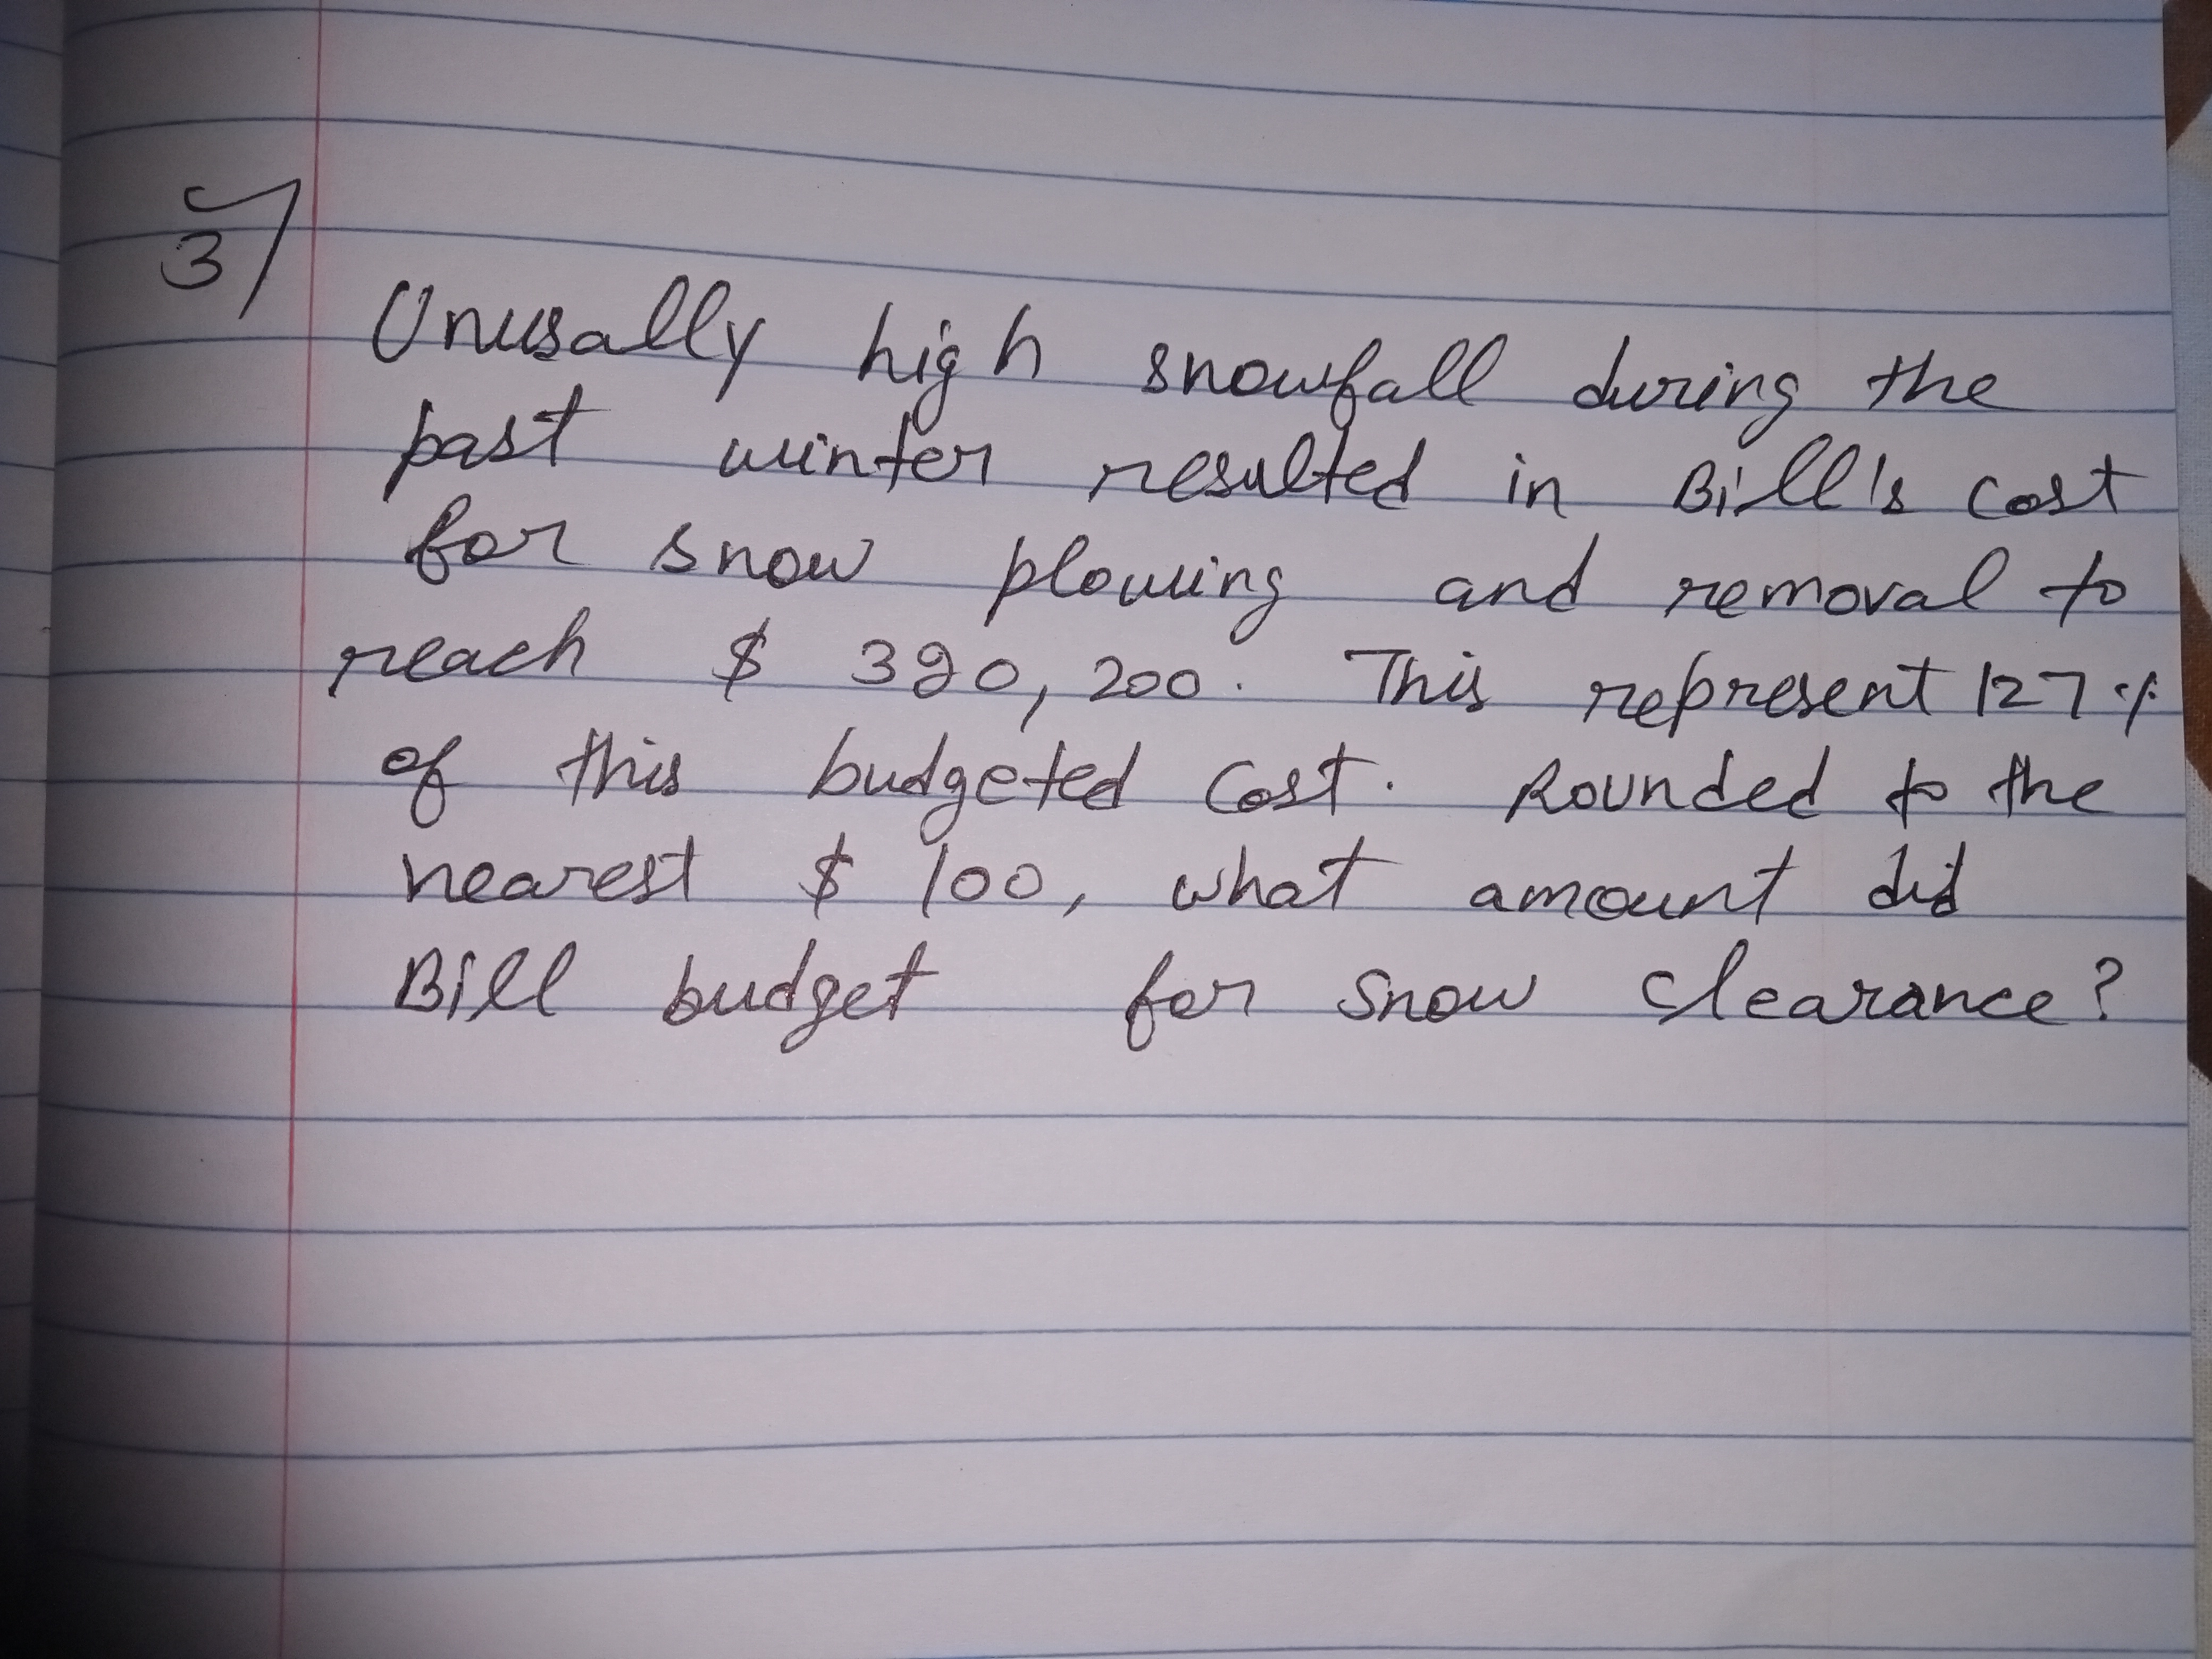 3)
Unusally high snowfall during the
past winter resulted in Bill's cost
for snow plowing and removal to
reach $ 390,200. This represent 127%
of this budgeted cost. Rounded to the
nearest $ 100, what amount did
Bill budget for snow clearance?